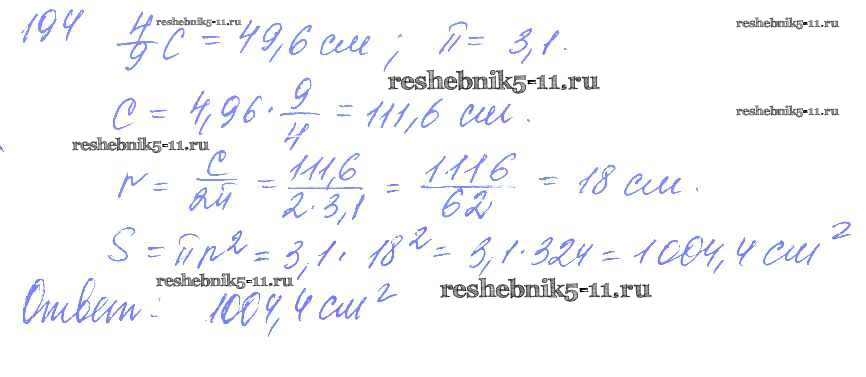 194 4/9 C = 49,6 см; π = 3,1.
reshebnik5-11.ru reshebnik5-11.ru
reshebnik5-11.ru
C = 4,96 · 9/4 = 111,6 см.
reshebnik5-11.ru reshebnik5-11.ru
r = C/2π = 111,6/2·3,1 = 1116/62 = 18 см.
S = πr² = 3,1 · 18² = 3,1 · 324 = 1004,4 см²
reshebnik5-11.ru reshebnik5-11.ru
Ответ: 1004,4 см²